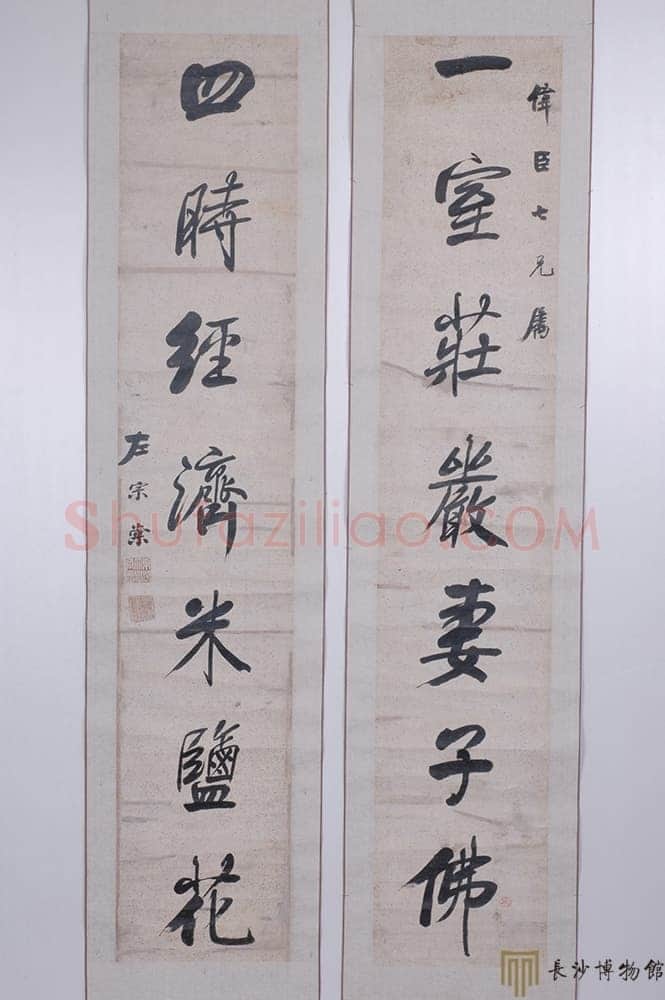 偉臣七兄屬
一室莊嚴妻子佛
四時經濟米鹽花
左宗棠
Shufaziliao.COM
長沙博物館